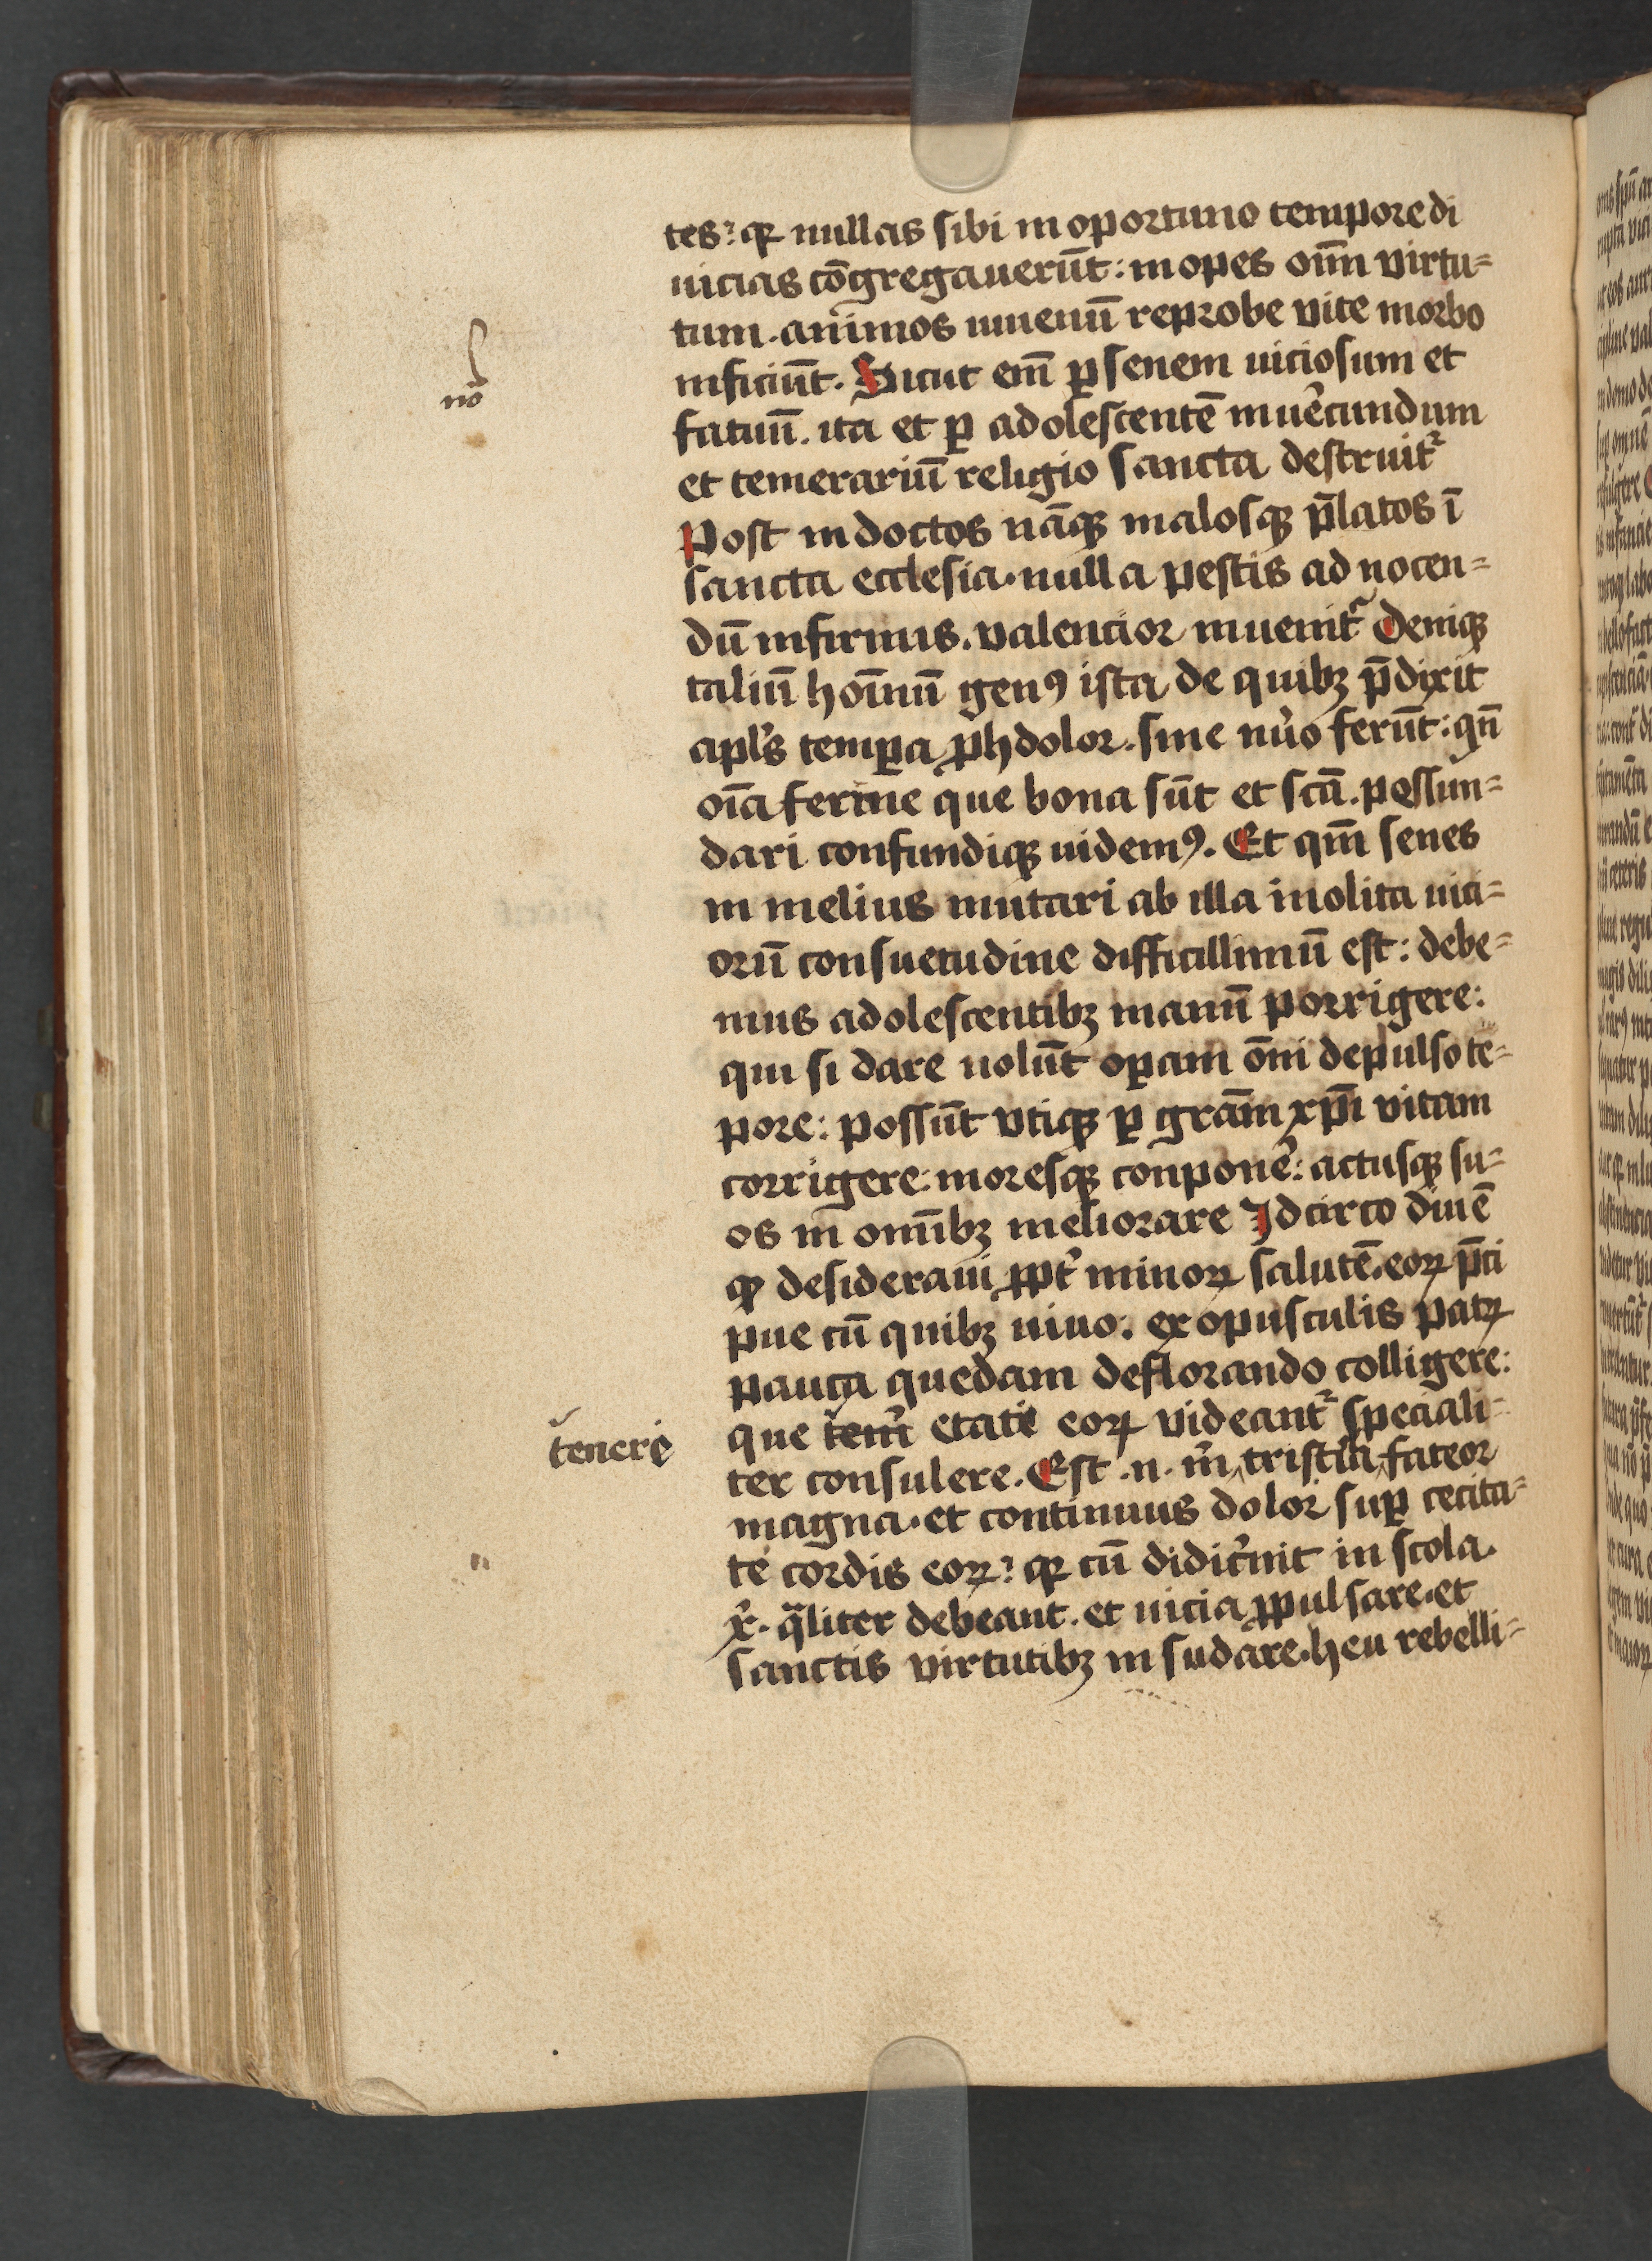 tes: qꝛ nullas sibi in oportuno tempore di
uicias cōgregauerūt: inopes om̄n virtu⸗
tum. animos iuuenū reprobe vite morbo
inficiūt. Sicut em̄ ꝑ senem uiciosum et
fatuū. ita et ꝑ adolescentē inuerͨundum
et temerariū religio sancta destruitᷣ
Post indoctos nāqꝫ malosqꝫ p̄latos ī
sancta ecclesia. nulla pestis ad nocen⸗
dū infirmis. valencior inuenitᷣ Deniqꝫ
taliū hoīnū genꝰ ista de quibꝫ p̄dixit
apl̓s tempa ꝓh dolor. sine nu̓o ferūt: qn̄
oīa ferme que bona sūt et scā. pessun⸗
dari confundiqꝫ uidemꝰ. Et qm̄ senes
in melius mutari ab illa inolita uici⸗
orū consuetudine difficillimū est: debe⸗
mus adolescentibꝫ manū porrigere:
qui si dare uolūt opam om̄i depulso te⸗
pore: possūt vtiqꝫ ꝑ grām xp̄i vitam
corrigere: moresqꝫ conpone̓: actusqꝫ su⸗
os in om̄ibꝫ meliorare Idcirco diu ē
qꝙ desideraui ꝓpt̓ minoꝝ salutē. eoꝝ p̄ci
pue cū quibꝫ uiuo: ex opusculis patꝝ
pauca quedam deflorando colligere:
tenere
que etati eoꝝ videantᷣ speciali⸗
ter consulere. Est .n. m̄ tristi͏cia fateor
magna. et continuus dolor suꝑ cecita⸗
te cordis eoꝝ: qꝛ cū didic̓int in scola.
x̓. qͣliter debeant. et uicia ꝓpulsare. et
sanctis virtutibꝫ insudare. heu rebelli⸗
no